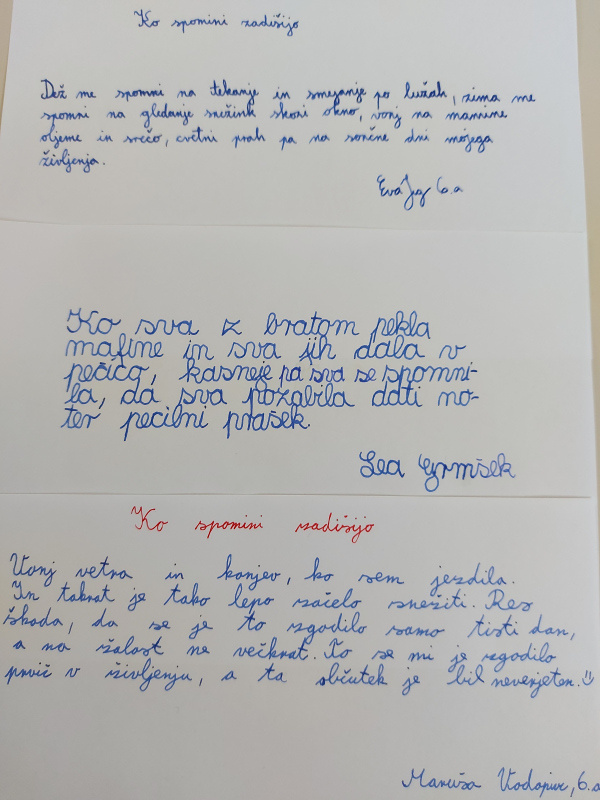 Ko spomini zadišijo
Dež me spomni na tekanje in smejanje po lužah, zima me
spomni na gledanje snežink skozi okno, vonj na mamine
objeme in srečo, cvetni prah pa na sončne dni mojega
življenja.
Eva 6.a
Ko sva z bratom pekla
mafine in sva jih dala v
pečico, kasneje pa sva se spomni-
la, da sva pozabila dati no-
ter pecilni prašek.
Lea Grmšek
Ko spomini zadišijo
Vonj vetra in konjev, ko sem jezdila.
In takrat je tako lepo začelo snežiti. Res
škoda, da se je to zgodilo samo tisti dan,
a na žalost ne večkrat. To se mi je zgodilo
prvič v življenju, a ta občutek je bil neverjeten.
Maruša Vodopivc, 6.a